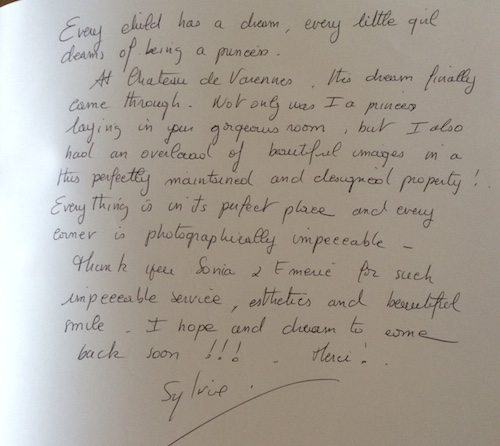 Every child has a dream, every little girl
dreams of being a princess.
At Chateau de Varennes, this dream finally
came through. Not only was I a princess
laying in your gorgeous room, but I also
had an overload of beautiful images in a
this perfectly maintained and designed property!
Everything is in its perfect place and every
corner is photographically impeccable -
Thank you Sonia & Emeric for such
impeccable service, esthetics and beautiful
smile. I hope and dream to come
back soon !!! . Merci!
Sylvie.